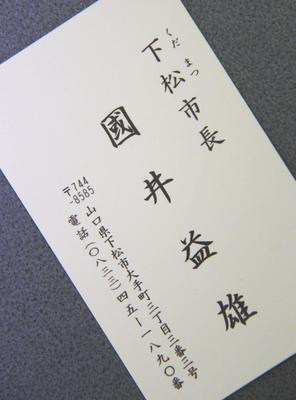 くだまつ
下松市長
國井益雄
〒744-8585
山口県下松市大手町三丁目三番三号
電話(〇八三三)四五ー一八九〇番